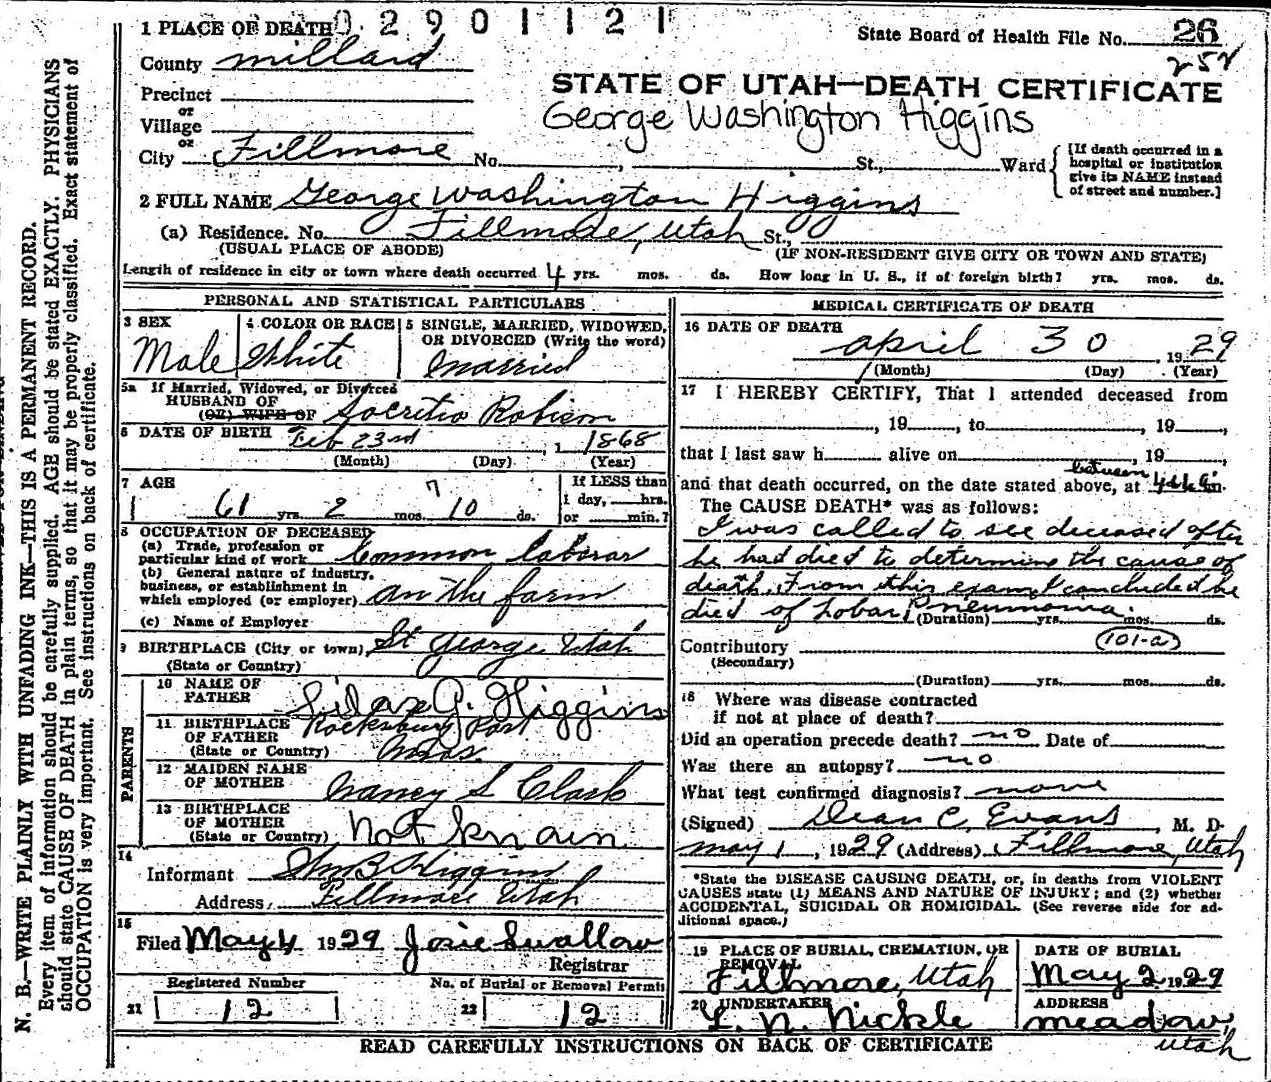 1 PLACE OF DEATH 02901121
State Board of Health File No. 26
252
County Millard
STATE OF UTAH—DEATH CERTIFICATE
Precinct
or
Village
George Washington Higgins
or
City Fillmore No. , St., Ward
[If death occurred in a hospital or institution give its NAME instead of street and number.]
2 FULL NAME George Washington Higgins
(a) Residence. No. Fillmore, Utah St.,
(USUAL PLACE OF ABODE) (IF NON-RESIDENT GIVE CITY OR TOWN AND STATE)
Length of residence in city or town where death occurred 4 yrs. mos. ds. How long in U. S., if of foreign birth? yrs. mos. ds.
PERSONAL AND STATISTICAL PARTICULARS
3 SEX 4 COLOR OR RACE 5 SINGLE, MARRIED, WIDOWED, OR DIVORCED (Write the word)
Male White Married
5a If Married, Widowed, or Divorced
HUSBAND OF
(OR) WIFE OF Robison
6 DATE OF BIRTH Feb 23rd , 1 1868
(Month) (Day) (Year)
7 AGE If LESS than
61 yrs. 2 mos. 7 10 ds. 1 day, hrs.
or min.?
8 OCCUPATION OF DECEASED
(a) Trade, profession or
particular kind of work Common laborar
(b) General nature of industry,
business, or establishment in
which employed (or employer) an the farm
(c) Name of Employer
9 BIRTHPLACE (City or town) St George Utah
(State or Country)
PARENTS
10 NAME OF
FATHER Silas G. Higgins
11 BIRTHPLACE
OF FATHER
(State or Country) Mas.
12 MAIDEN NAME
OF MOTHER Nancy S Clark
13 BIRTHPLACE
OF MOTHER
(State or Country) Not knoin
14
Informant Wm B Higgins
Address, Fillmore Utah
15
Filed May 4 1929 Josie Swallow
Registrar
Registered Number No. of Burial or Removal Permit
21 12 22 12
MEDICAL CERTIFICATE OF DEATH
16 DATE OF DEATH
April 30, 1929
(Month) (Day) (Year)
17 I HEREBY CERTIFY, That I attended deceased from
, 19 , to , 19 ,
that I last saw h alive on , 19 ,
between
and that death occurred, on the date stated above, at m.
The CAUSE DEATH* was as follows:
I was called to see deceased after
he had died to determine the cause of
death. From this exam, I concluded he
died of Lobar Pneumonia.
(Duration) yrs. mos. ds.
Contributory (101-a)
(Secondary)
(Duration) yrs. mos. ds.
18 Where was disease contracted
if not at place of death?
Did an operation precede death? no Date of
Was there an autopsy? no
What test confirmed diagnosis? none
(Signed) Dean C. Evans, M. D.
May 1, 1929 (Address) Fillmore, Utah
*State the DISEASE CAUSING DEATH, or, in deaths from VIOLENT
CAUSES state (1) MEANS AND NATURE OF INJURY; and (2) whether
ACCIDENTAL, SUICIDAL OR HOMICIDAL. (See reverse side for ad-
ditional space.)
19 PLACE OF BURIAL, CREMATION, OR REMOVAL DATE OF BURIAL
Fillmore, Utah May 2 1929
20 UNDERTAKER ADDRESS
L. N. Nickle Meadow,
Utah
READ CAREFULLY INSTRUCTIONS ON BACK OF CERTIFICATE
N. B.—WRITE PLAINLY WITH UNFADING INK—THIS IS A PERMANENT RECORD.
Every item of information should be carefully supplied. AGE should be stated EXACTLY. PHYSICIANS
should state CAUSE OF DEATH in plain terms, so that it may be properly classified. Exact statement of
OCCUPATION is very important. See instructions on back of certificate.